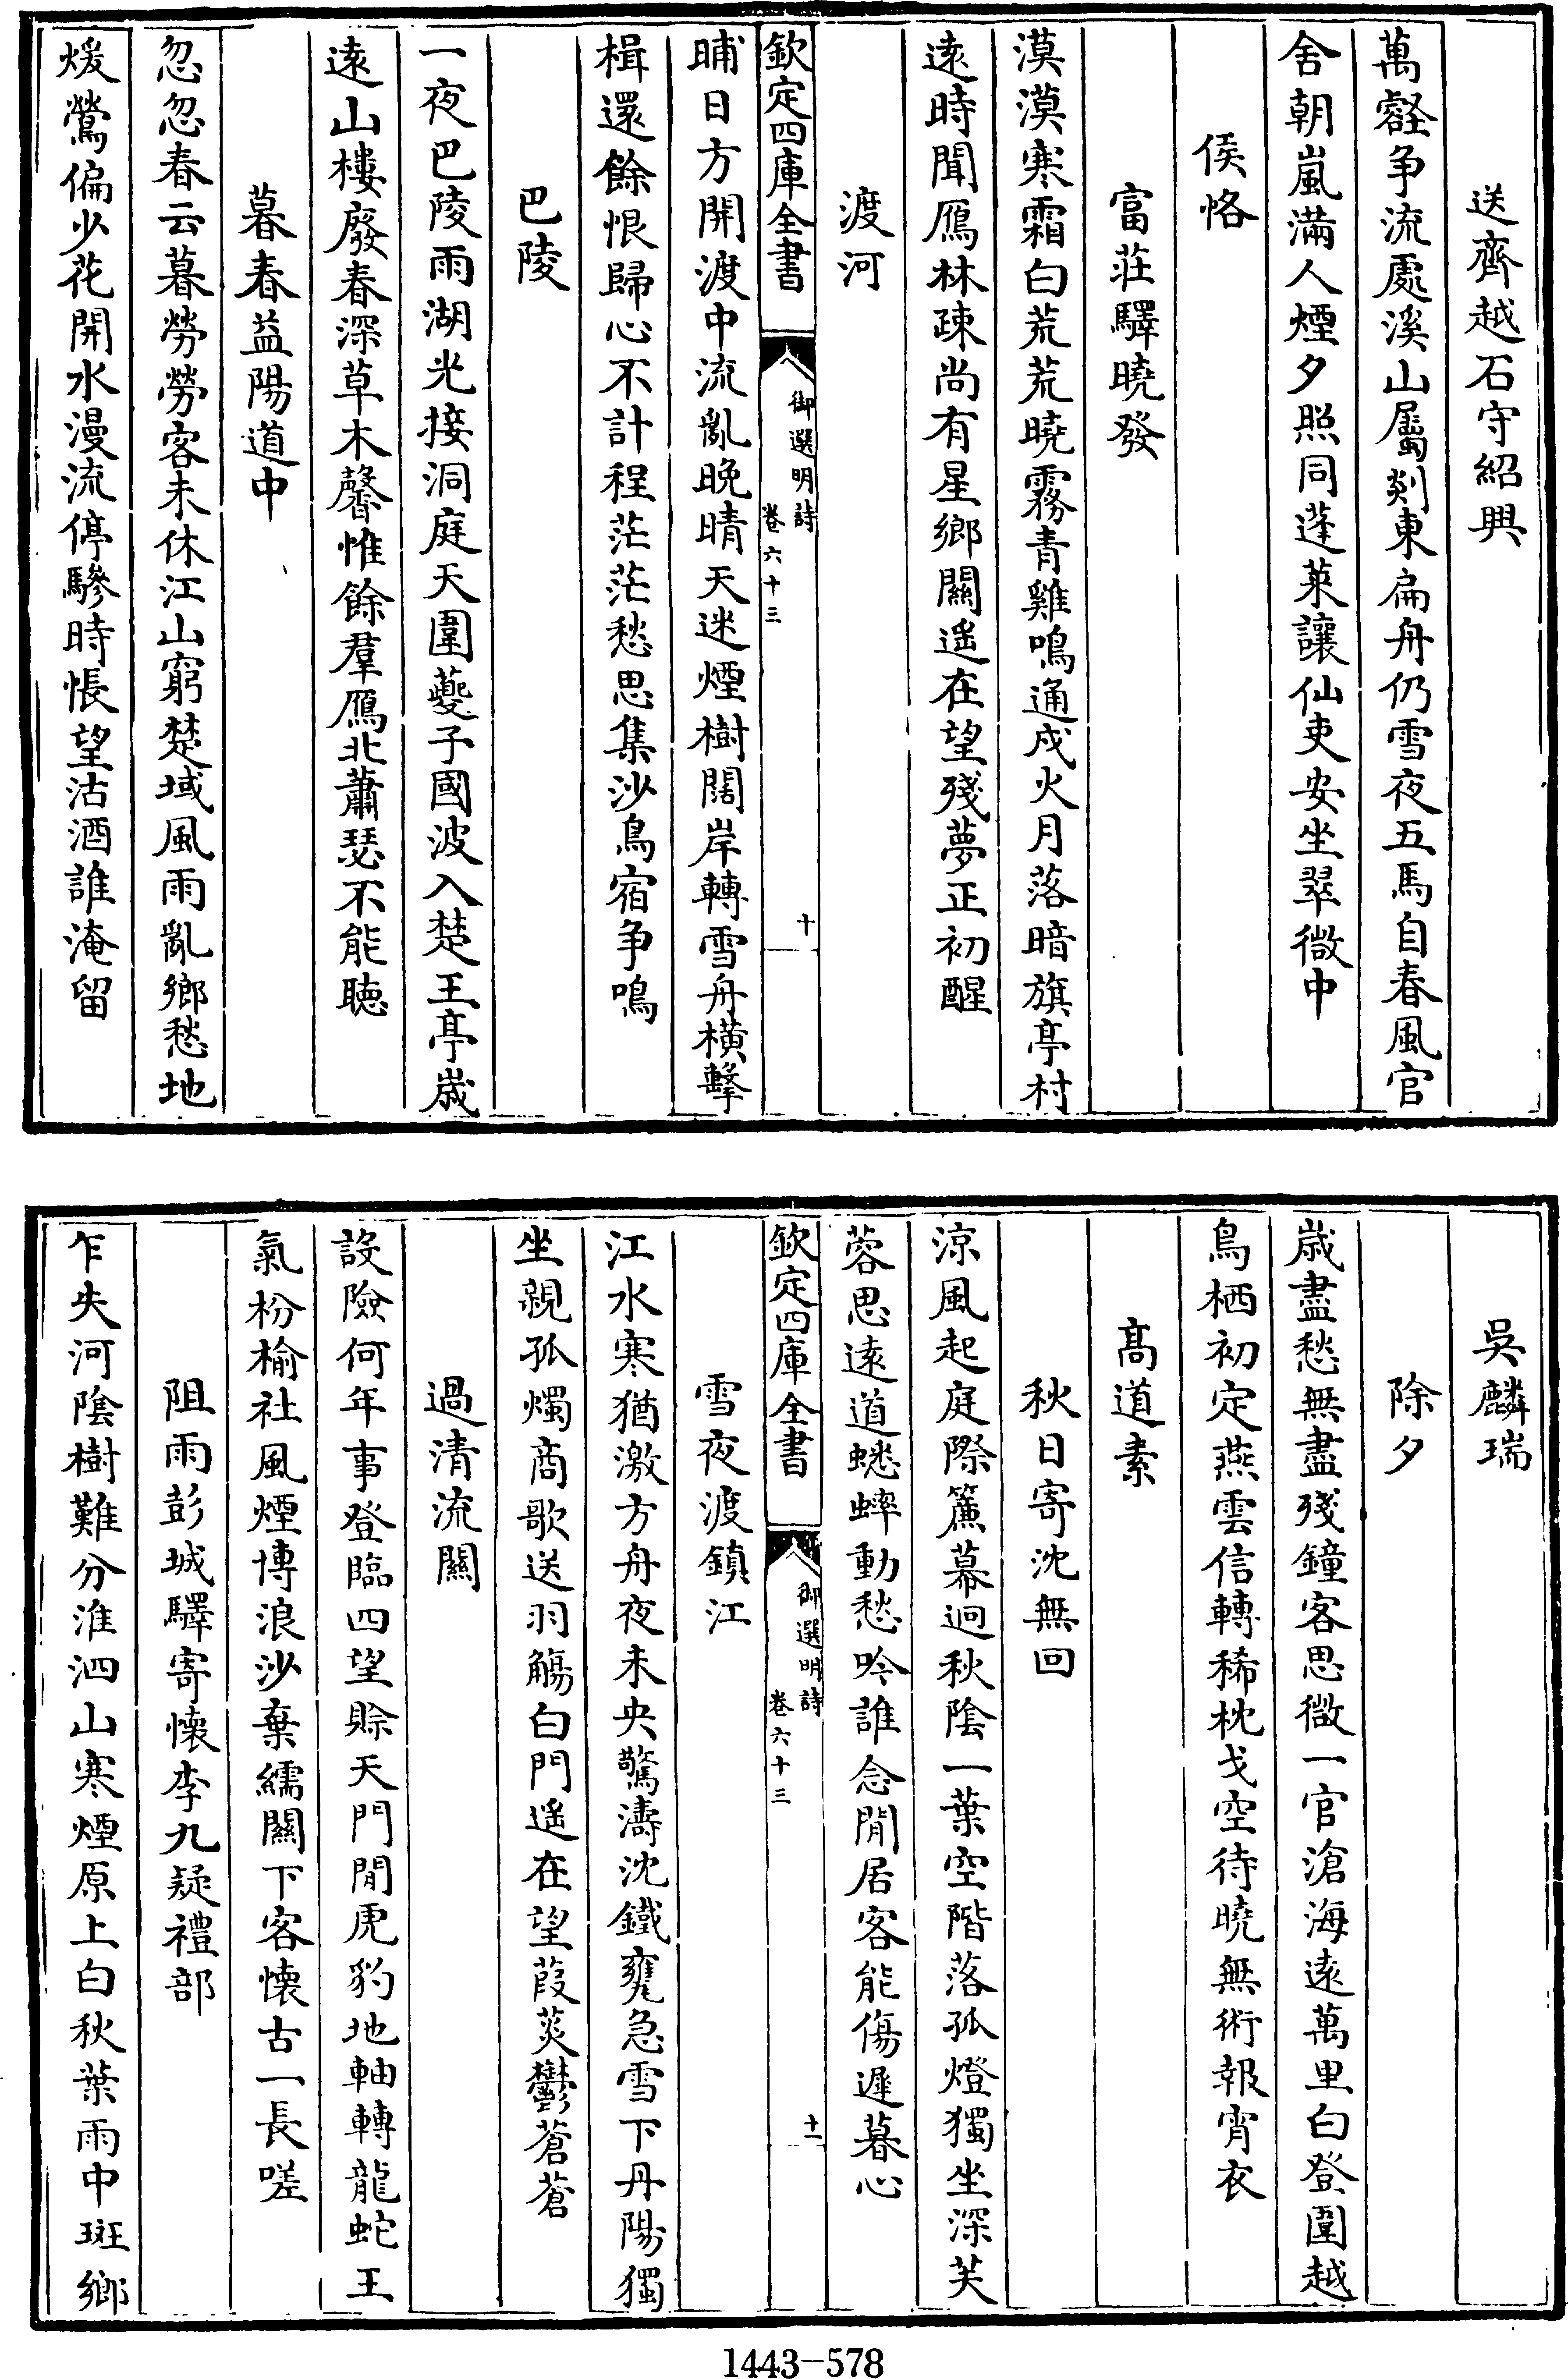 送齊越石守紹興
萬壑争流處溪山屬剡東扁舟仍雪夜五馬自春風官
舍朝嵐滿人煙夕照同蓬萊讓仙吏安坐翠微中
侯恪
富莊驛曉發
漠漠寒霜白荒荒曉霧青雞鳴通戍火月落暗旗亭村
逺時聞鴈林疎尚有星鄉關遥在望殘夢正初醒
渡河
欽定四庫全書
御選明詩
卷六十三
十
晡日方開渡中流亂晚晴天迷煙樹闊岸轉雪舟横擊
楫還餘恨歸心不計程茫茫愁思集沙鳥宿争鳴
巴陵
一夜巴陵雨湖光接洞庭天圍夔子國波入楚王亭嵗
逺山樓廢春深草木馨惟餘羣鴈北蕭瑟不能聴
暮春益陽道中
忽忽春云暮勞勞客未休江山窮楚域風雨亂鄉愁地
煖鶯偏少花開水漫流停驂時悵望沽酒誰淹留
吳麟瑞
除夕
嵗盡愁無盡殘鐘客思微一官滄海逺萬里白登圍越
鳥栖初定燕雲信轉稀枕戈空待曉無術報宵衣
髙道素
秋日寄沈無回
涼風起庭際簾幕迥秋陰一葉空階落孤燈獨坐深芙
蓉思逺道蟋蟀動愁吟誰念閒居客能傷遲暮心
欽定四庫全書
御選明詩
卷六十三
十一
雪夜渡鎮江
江水寒猶激方舟夜未央驚濤沈鐵甕急雪下丹陽獨
坐親孤燭商歌送羽觴白門遥在望葭菼鬱蒼蒼
過清流關
設險何年事登臨四望賒天門閒虎豹地軸轉龍蛇王
氣枌榆社風煙博浪沙棄繻關下客懐古一長嗟
阻雨彭城驛寄懐李九疑禮部
乍失河陰樹難分淮泗山寒煙原上白秋葉雨中斑鄉
1443-578